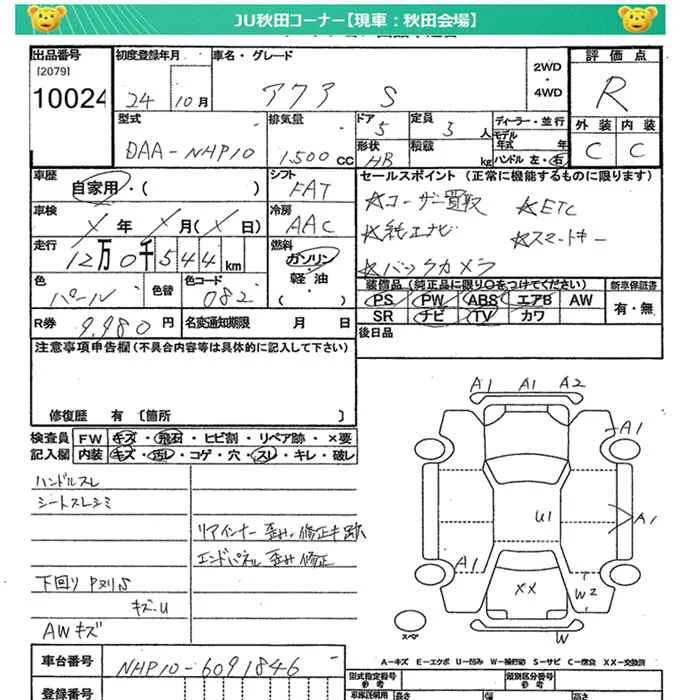 JU秋田コーナー【現車：秋田会場】
出品番号 初度登録年月 車名・グレード 評価点
[2079] 2WD
10024 24 10月 アクア S ・4WD R
型式 排気量 ドア 定員 ディーラー・並行 外装 内装
DAA-NHP10 1500CC 5 3人 モデル年式 年 C C
形状 HB 積載 kg ハンドル 左・右
車歴 シフト セールスポイント (正常に機能するものに限ります)
自家用・( ) FAT ☆ユーザー買取 ☆ETC
車検 冷房 ☆純正ナビ ☆スマートキー
X年 X月(X日) AAC ☆バックカメラ
走行 燃料
12万0千544km ガソリン
色 色替 色コード 軽・油
パール 082 ・( )
装備品 (純正品に限り○をつけてください) 新車保証書
PS PW ABS エアB AW 有・無
SR ナビ TV カワ
R券 9,980円 名変通知期限 月 日 後日品
注意事項申告欄(不具合内容等は具体的に記入して下さい)
修復歴 有 〔箇所 〕
検査員 FW キズ・飛石・ヒビ割・リペア跡・×要
記入欄 内装 キズ・汚レ・コゲ・穴・スレ・キレ・破レ
ハンドルスレ
シートスレシミ
リアインナー歪み・修正キ跡
エンドパネル歪み修正
下回りPヌリS
キズ-U
AWキズ
A1 A1 A2
A1
U1 A1
A1
XX W2
W
スペア
A-キズ E-エクボ U-凹み W-補修跡 S-サビ C-腐食 XX-交換済
車台番号 NHP10-6091846
登録番号
型式指定番号 類別区分番号
参考 参考
車検証明用 長さ 幅 高さ